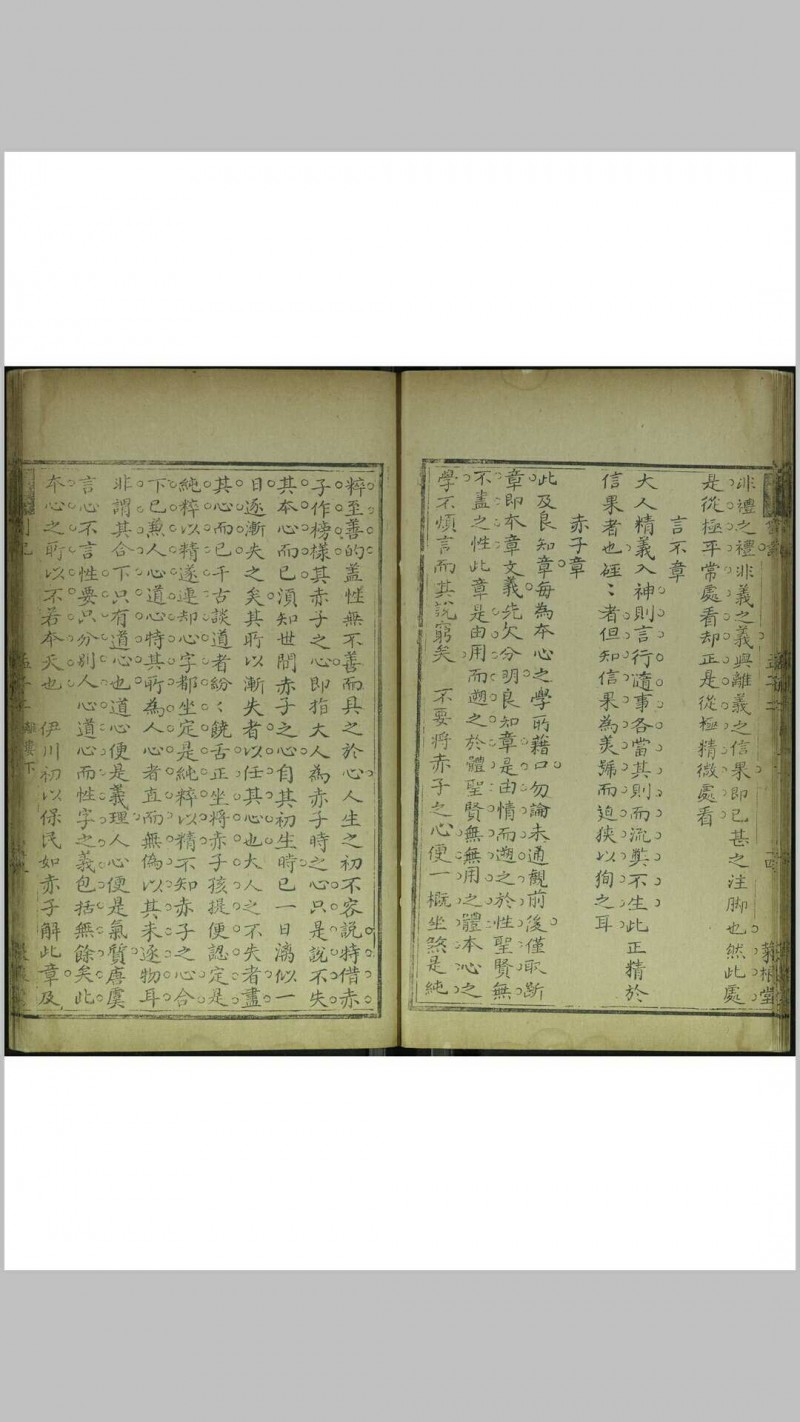 非禮之禮非義之義與離義之信果即已甚之注脚也然此處
是從極平常處看却正是從極精微處看
言不章
大人精義入神則言行隨事各當其則而流獘不生此正精於
信果者也硜〻者但知信果為美號而迫狹以狥之耳
赤子章
此及良知章每為夲心之學所藉口勿論未通觀前後僅取斷
章即夲章文義先欠分明良知章是由情而遡之於性聖賢無
不盡之性此章是由用而遡之於體聖賢無無用之體本心之
學不煩言而其說窮矣 不要將赤子之心便一概坐煞是純
粹至善的盖性無不善而具之於心人生之初不容說特借赤
子作榜樣其赤子之心即指大人為赤子時之心只是說不失
其夲心而已湏知世間赤子之心自其初生時已一日漓似一
日逐漸失之矣其所以漸失者以任其心也大人之不失者盡
其心而已千古談道者紛〻饒舌正坐將赤子孩提便認定是
純粹以精遂連却心字都坐定是純粹以精不知赤子之心合
下已兼人心道心特其所為人心者直而無偽以其未逐物耳
非謂其合下只有道心也道心便是義理人心便是氣質唐虞
言心不言性要只分别人心道心而性字之義包括無餘矣此
夲心之所以不若夲天也 伊川初以保民如赤子解此章及